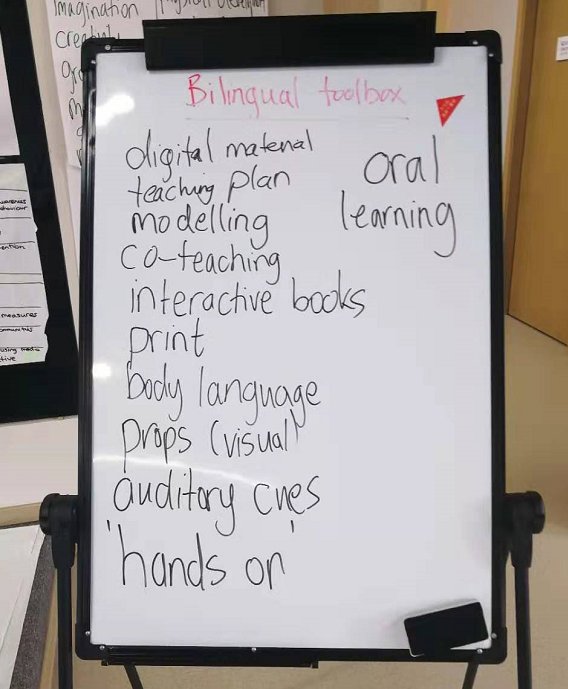 imagination
physical
Bilingual toolbox
digital material
teaching plan
modelling
co-teaching
interactive books
print
body language
props (visual)
auditory cues
'hands on'
oral
learning
measures